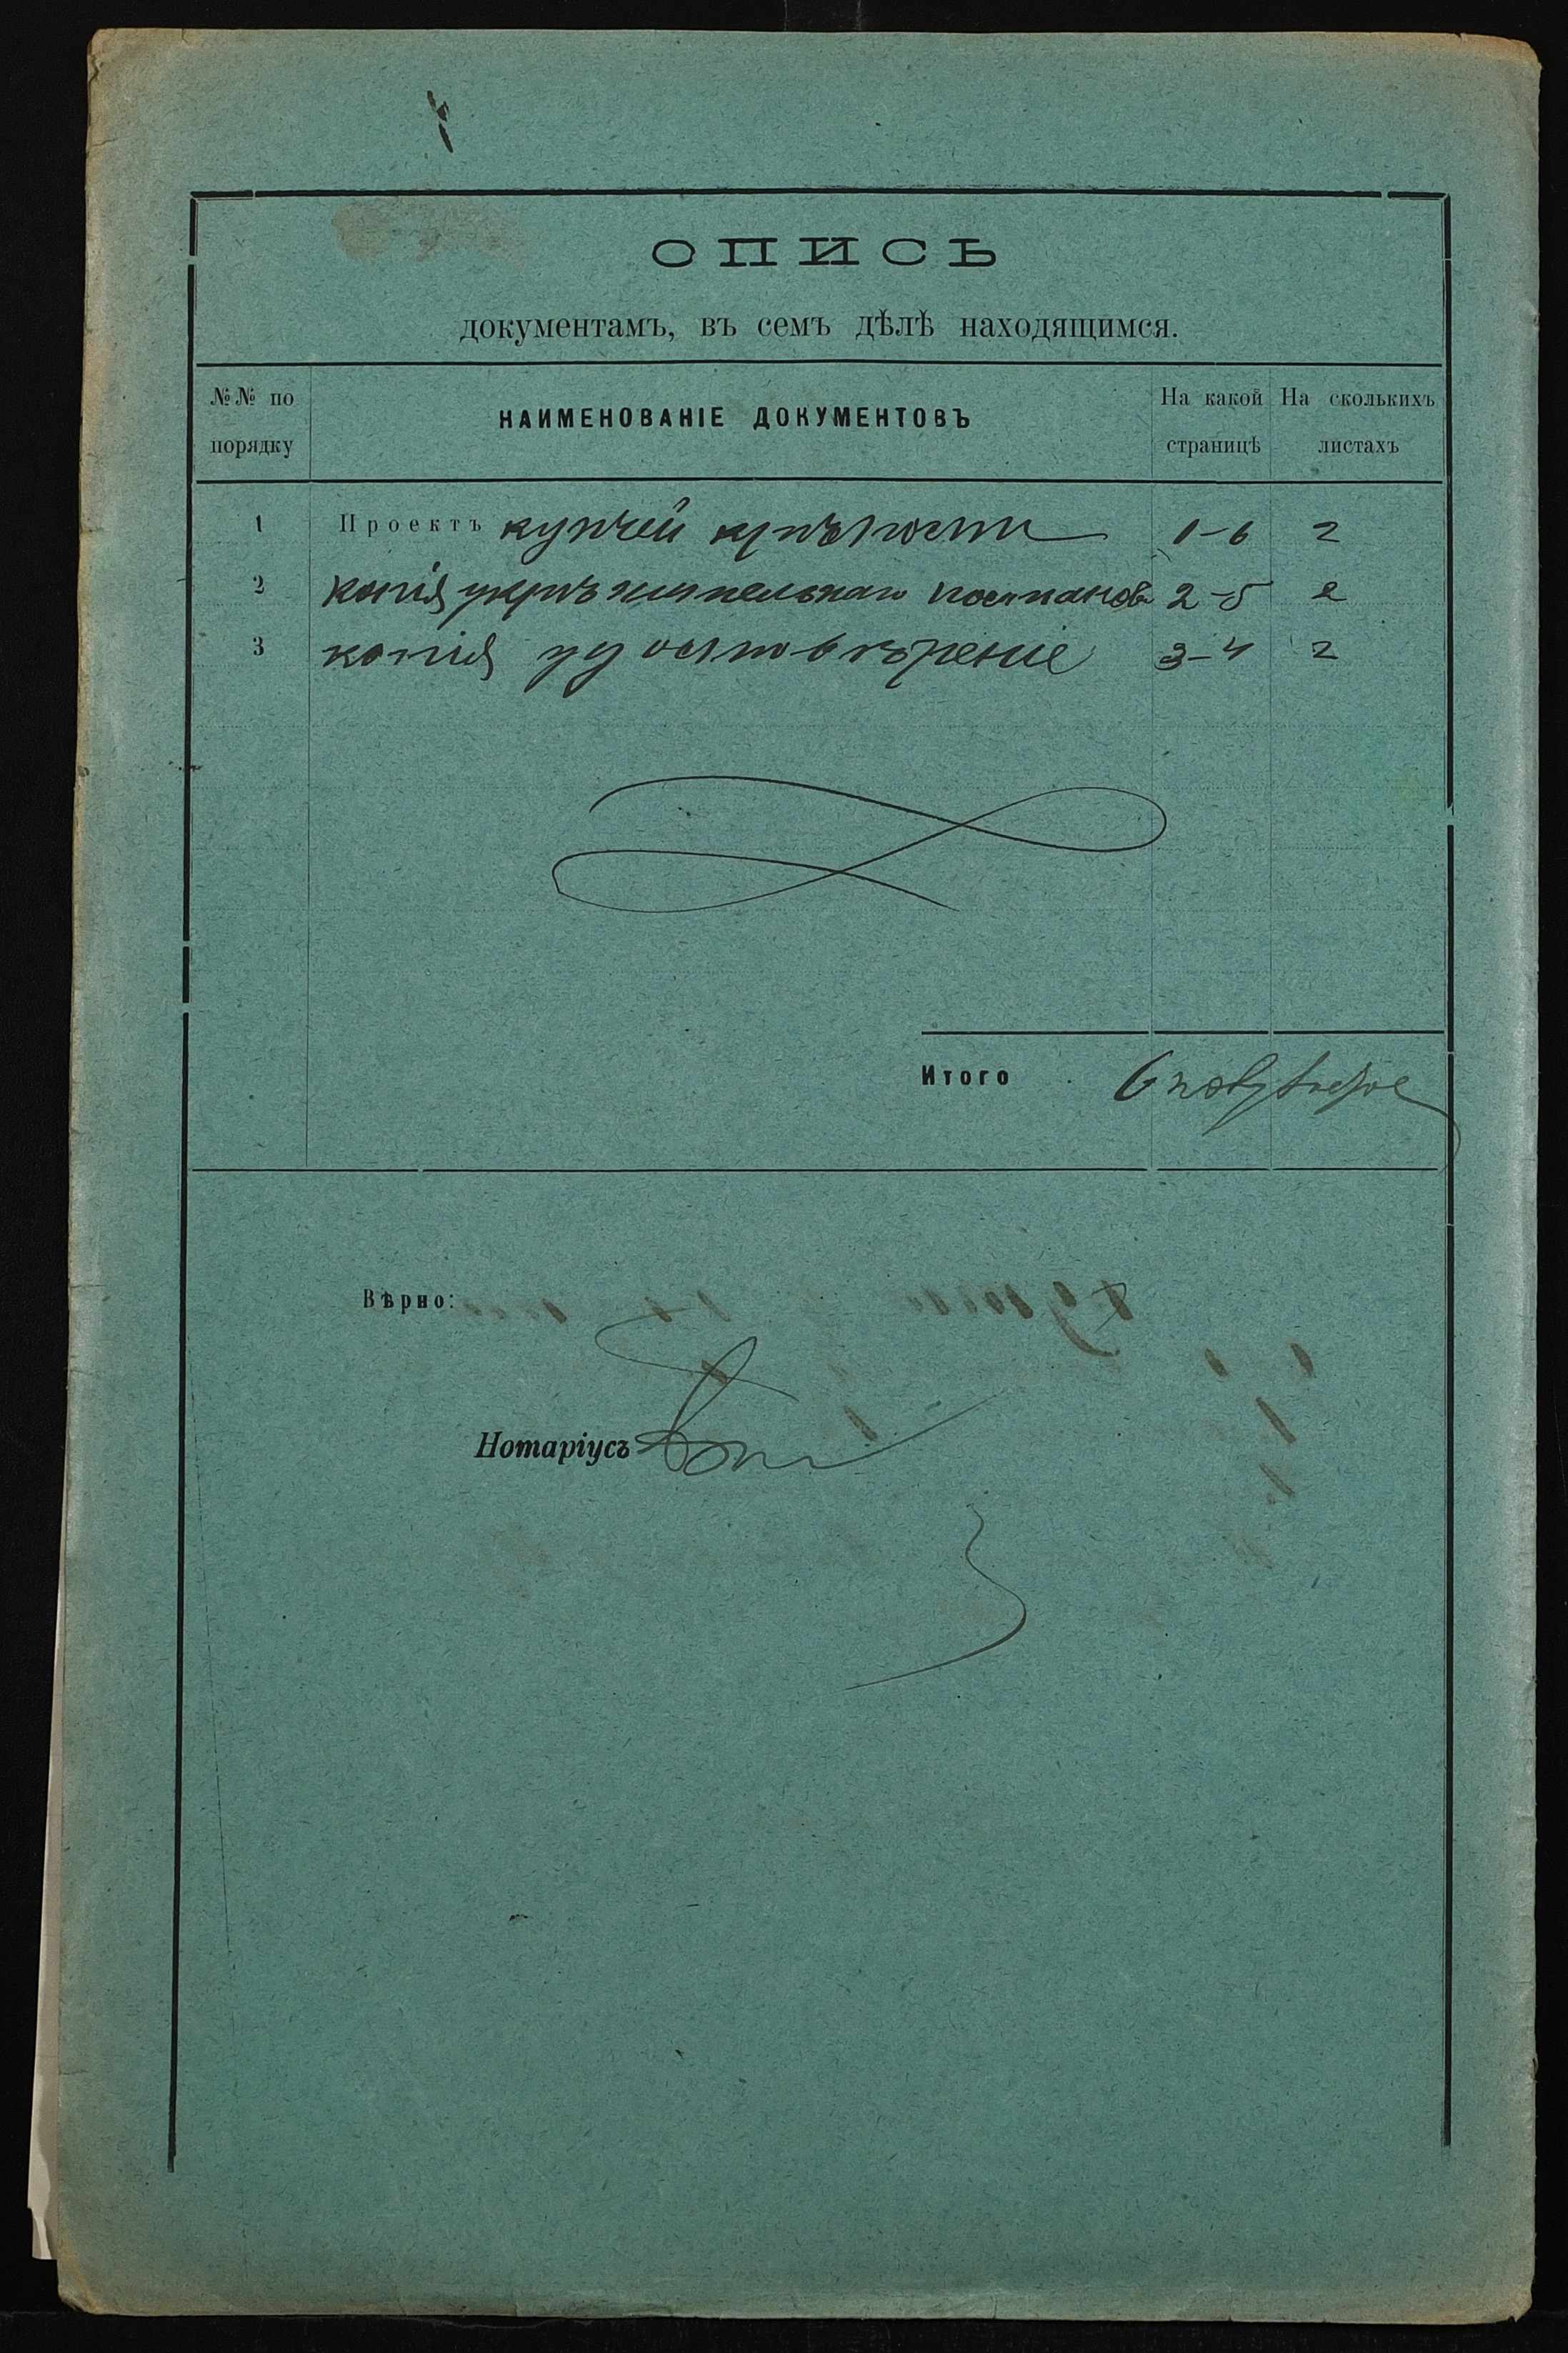 ОПИСЬ
документамъ, въ семъ дѣлѣ находящимся.
№№ по порядку
НАИМЕНОВАНІЕ ДОКУМЕНТОВЪ
На какой страницѣ
На сколькихъ листахъ
1 Проектъ купчей крѣпости 1-6 2
2 копія укрѣпительнаго постанов 2-5 2
3 копія удостовѣреніе 3-4 2
Итого 6
Вѣрно:
Нотаріусъ